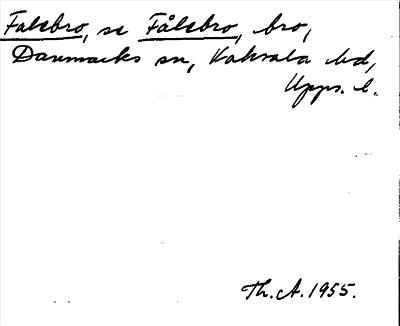 Falebro, se Fålebro, bro,
Danmarks sn, Vaksala hd,
Upps. l.
Th. A. 1955.